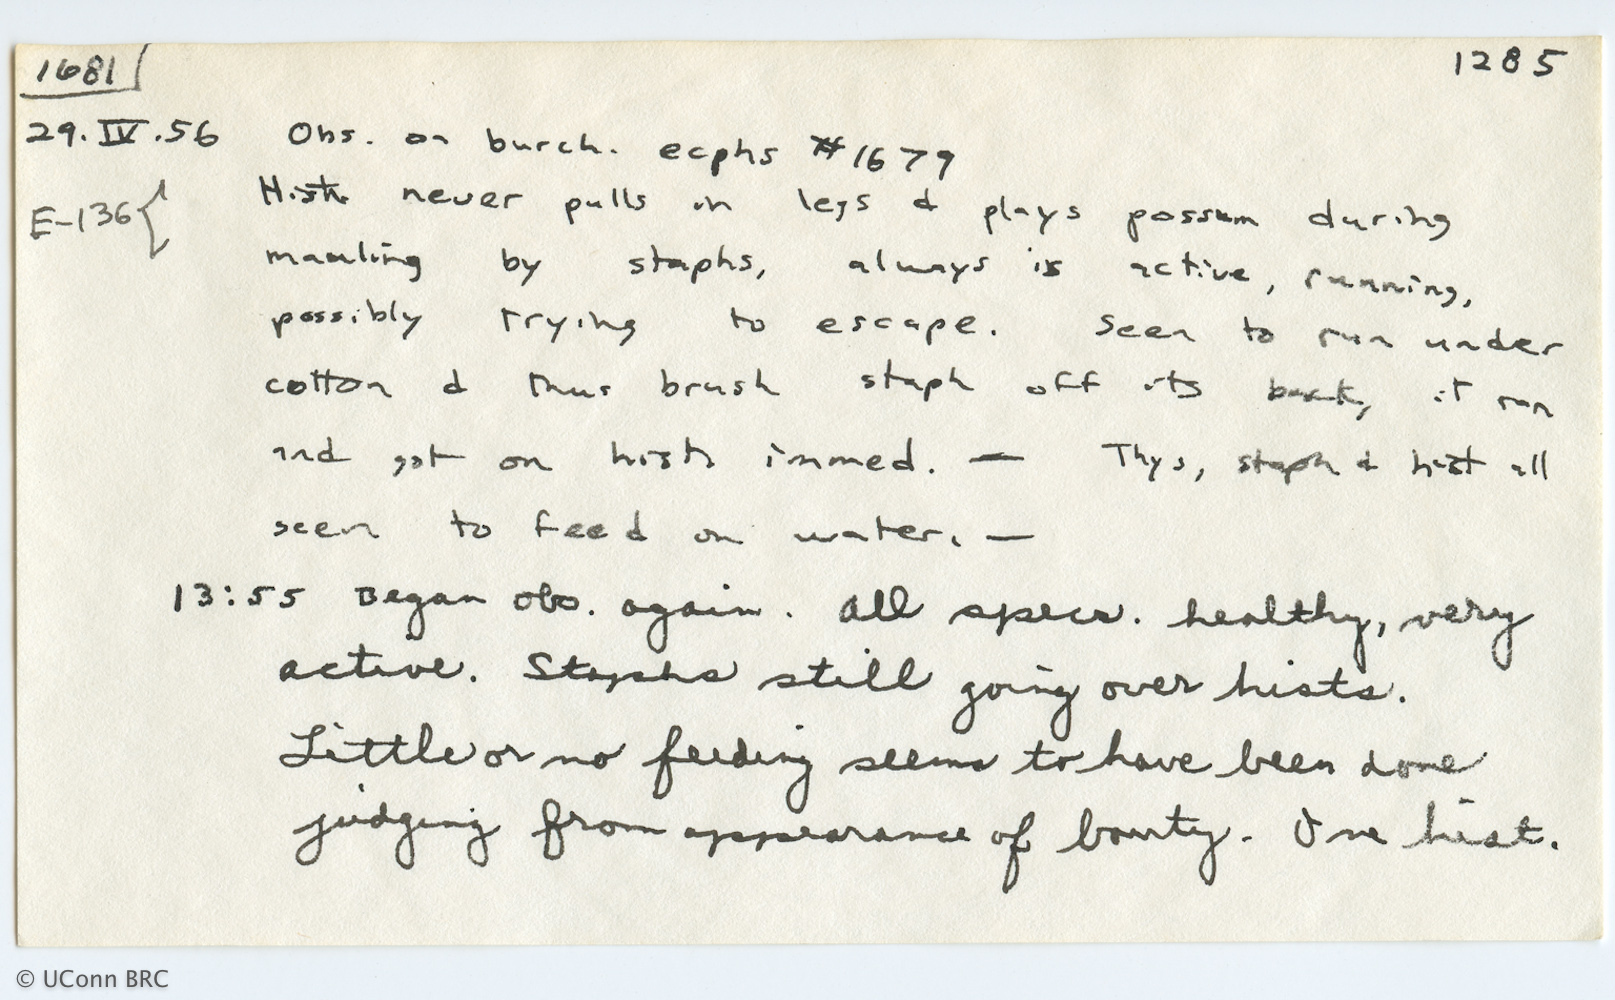 1681 1285
29.IV.56 Obs. on burch. ecphs #1679
Hist. never pulls in legs & plays possum during
E-136 { mauling by staphs, always is active, running,
possibly trying to escape. Seen to run under
cotton & thus brush staph off its back, it ran
and got on hist immed. — Thys, staph & hist all
seen to feed on water. —
13:55 Began obs. again. All specs. healthy, very
active. Staphs still going over hists.
Little or no feeding seems to have been done
judging from appearance of booty. One hist.
© UConn BRC